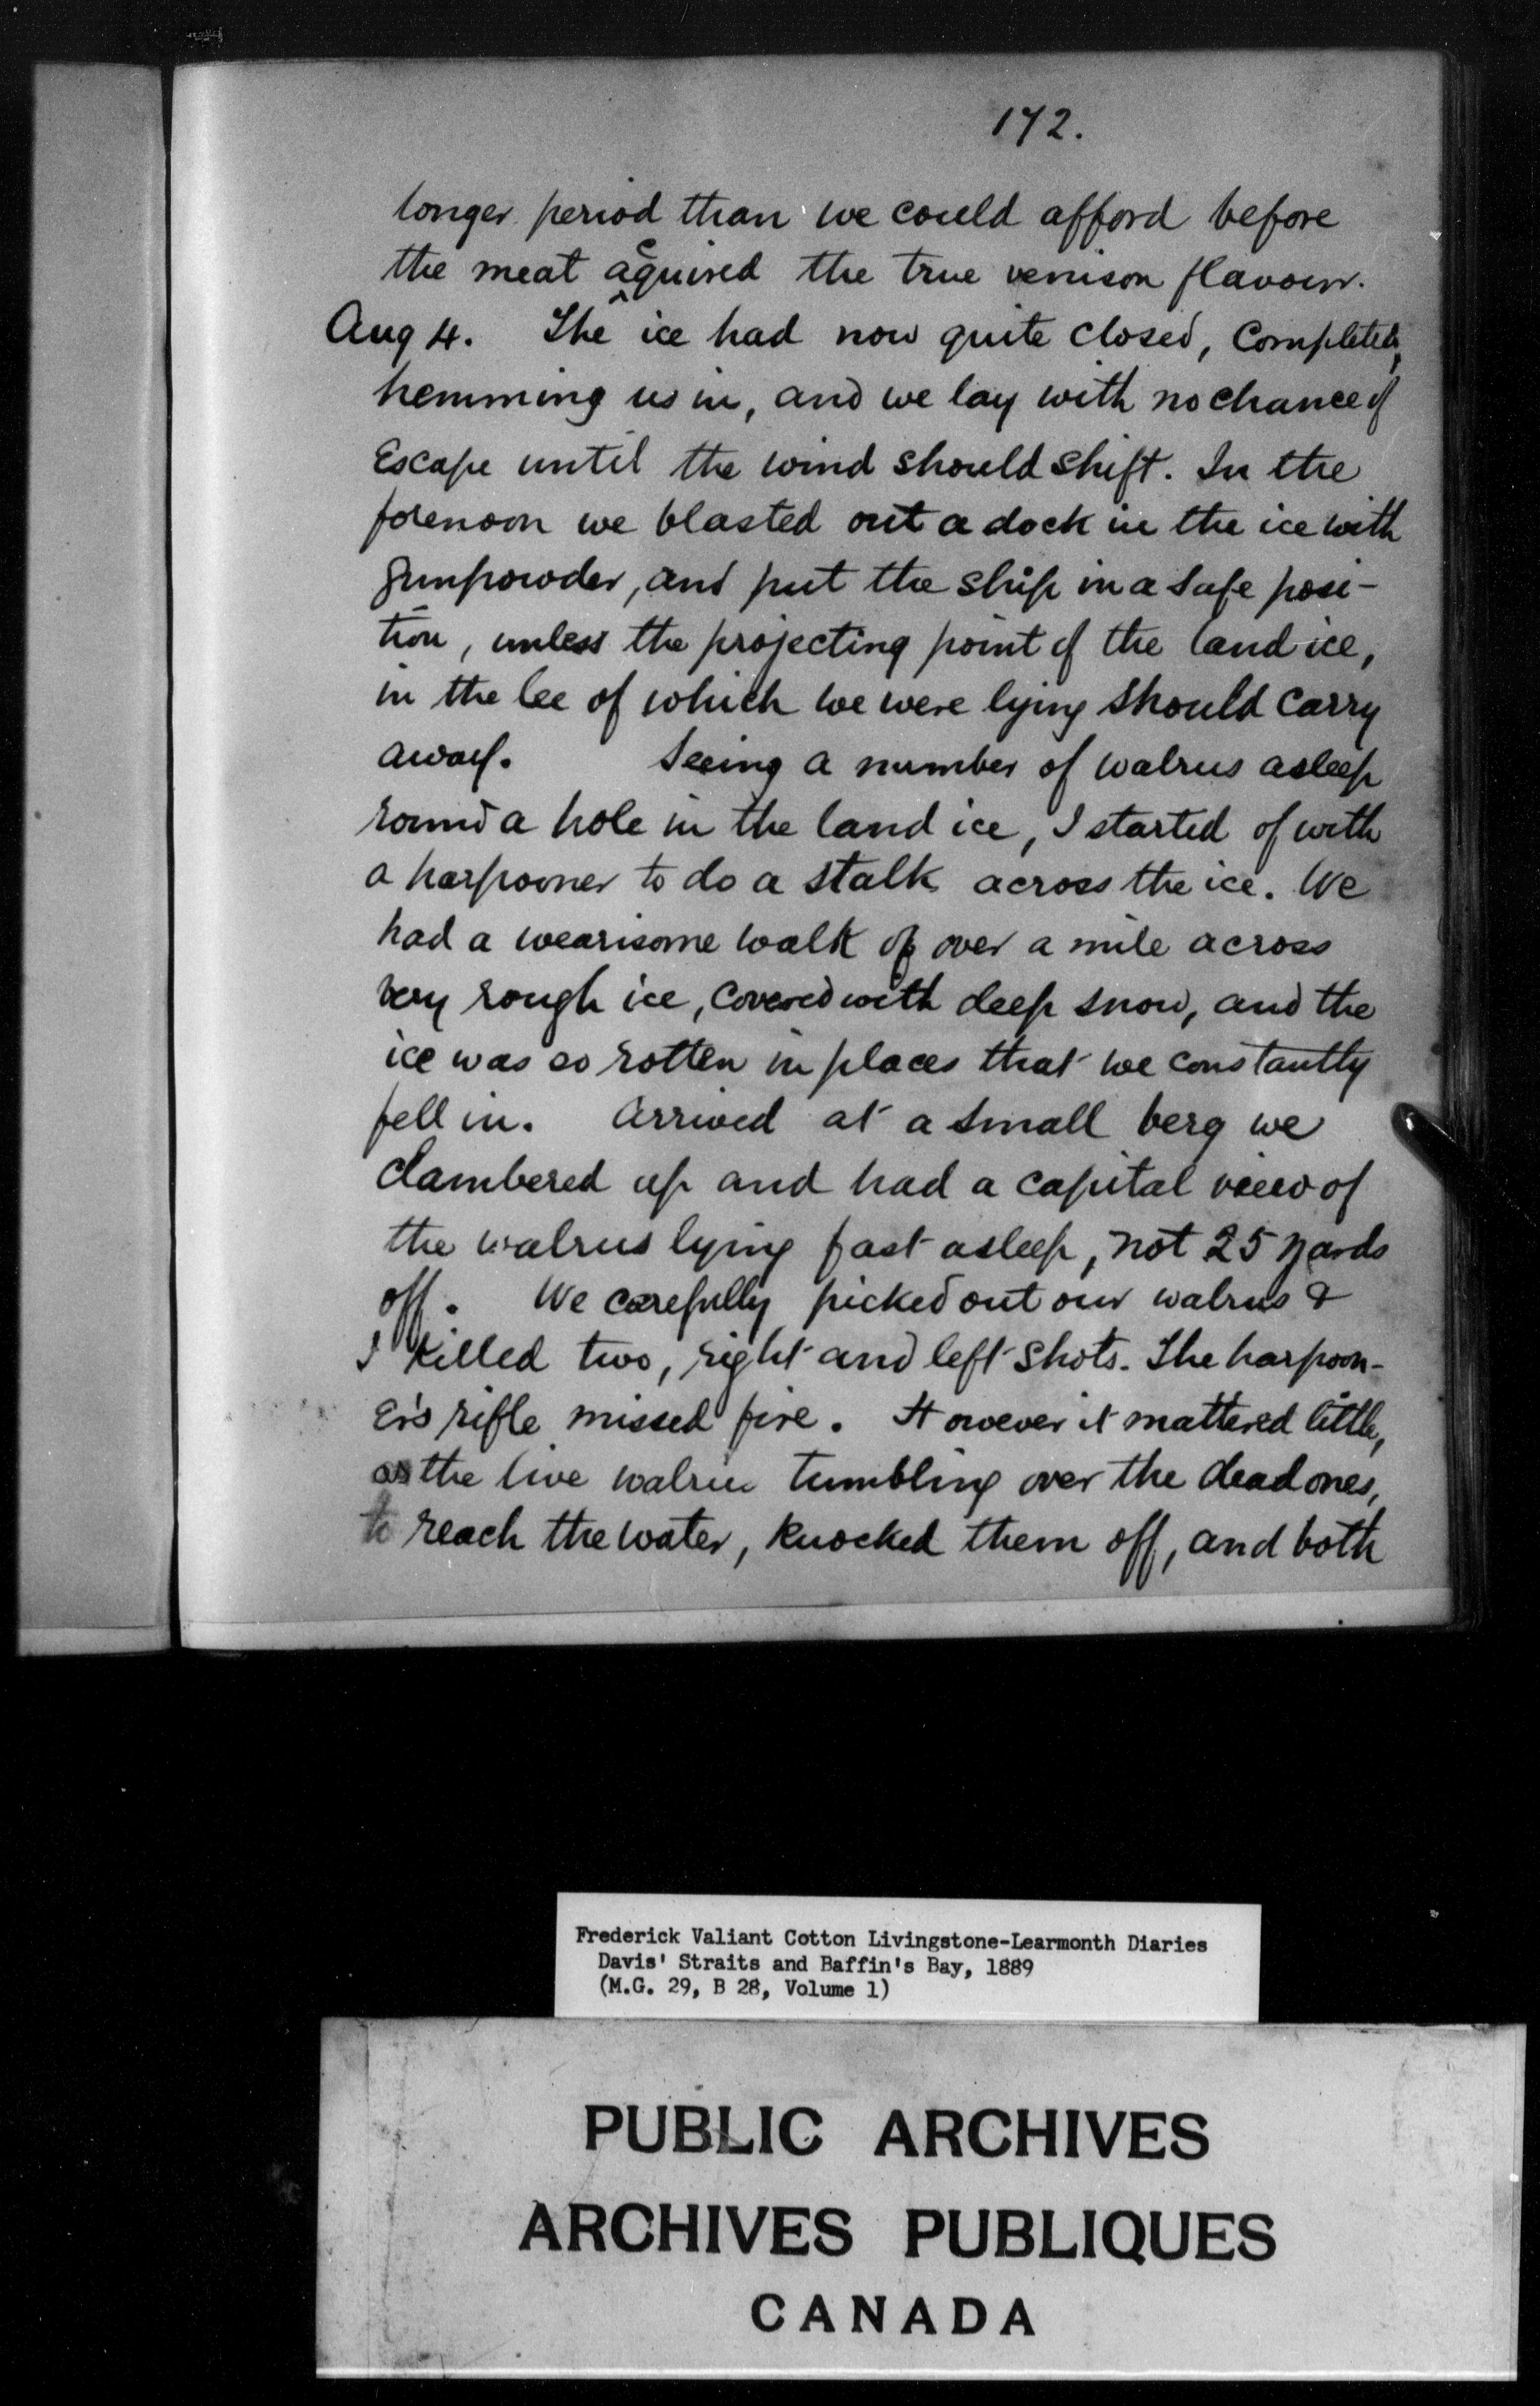 172.
longer period than we could afford before
the meat acquired the true venison flavour.
Aug 4. The ice had now quite closed, Completely
hemming us in, and we lay with no chance of
Escape until the wind should shift. In the
forenoon we blasted out a dock in the ice with
gunpowder, and put the ship in a safe posi-
tion, unless the projecting point of the land ice,
in the lee of which we were lying should carry
away. Seeing a number of walrus asleep
round a hole in the land ice, I started of with
a harpooner to do a stalk across the ice. We
had a wearisome walk of over a mile across
very rough ice, covered with deep snow, and the
ice was so rotten in places that we constantly
fell in. Arrived at a small berg we
clambered up and had a capital view of
the walrus lying fast asleep, not 25 yards
off. We carefully picked out our walrus &
I killed two, right and left shots. The harpoon-
er's rifle missed fire. However it mattered little,
as the live walrus tumbling over the dead ones,
to reach the water, knocked them off, and both
Frederick Valiant Cotton Livingstone-Learmonth Diaries
Davis' Straits and Baffin's Bay, 1889
(M.G. 29, B 28, Volume 1)
PUBLIC ARCHIVES
ARCHIVES PUBLIQUES
CANADA